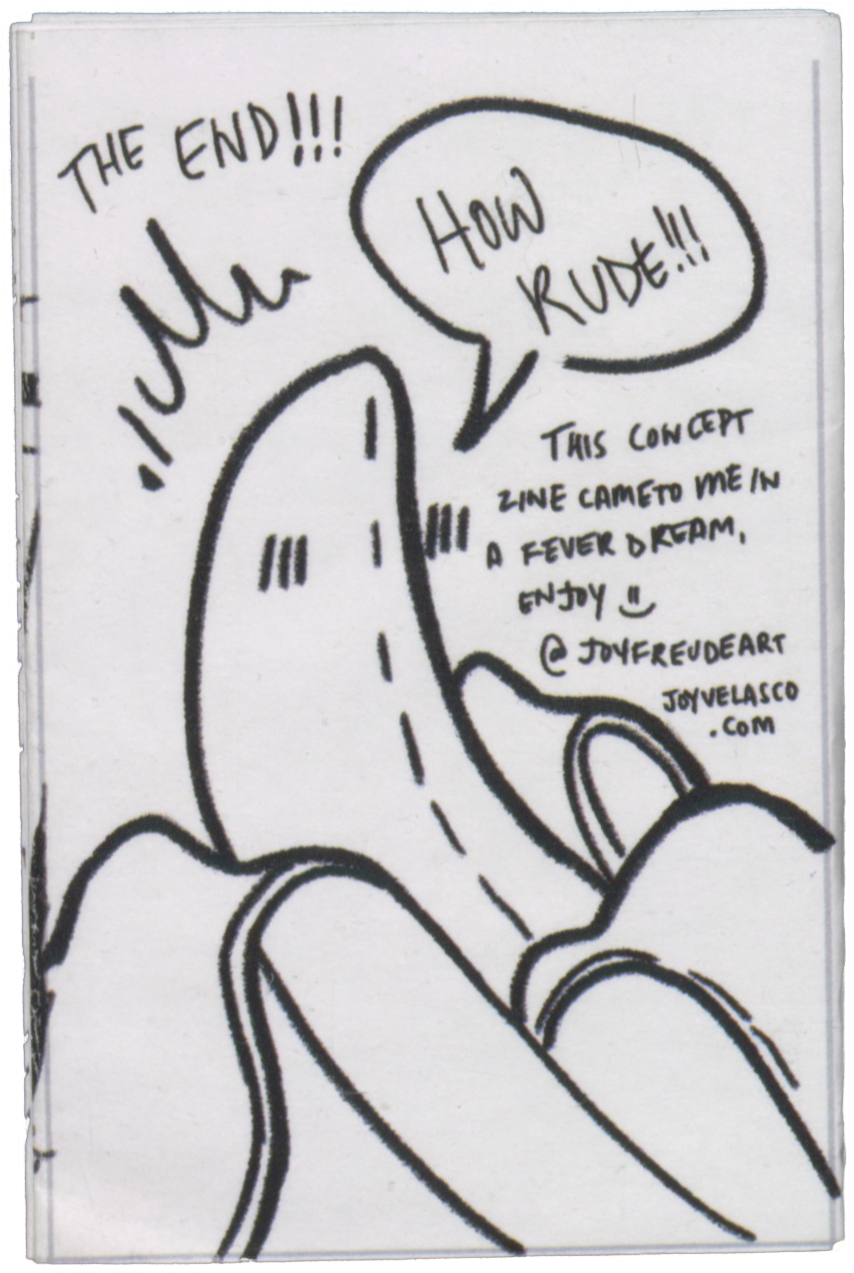 THE END!!!
HOW
RUDE!!!
THIS CONCEPT
ZINE CAME TO ME IN
A FEVER DREAM,
ENJOY
@JOYFREUDEART
JOYVELASCO
.COM